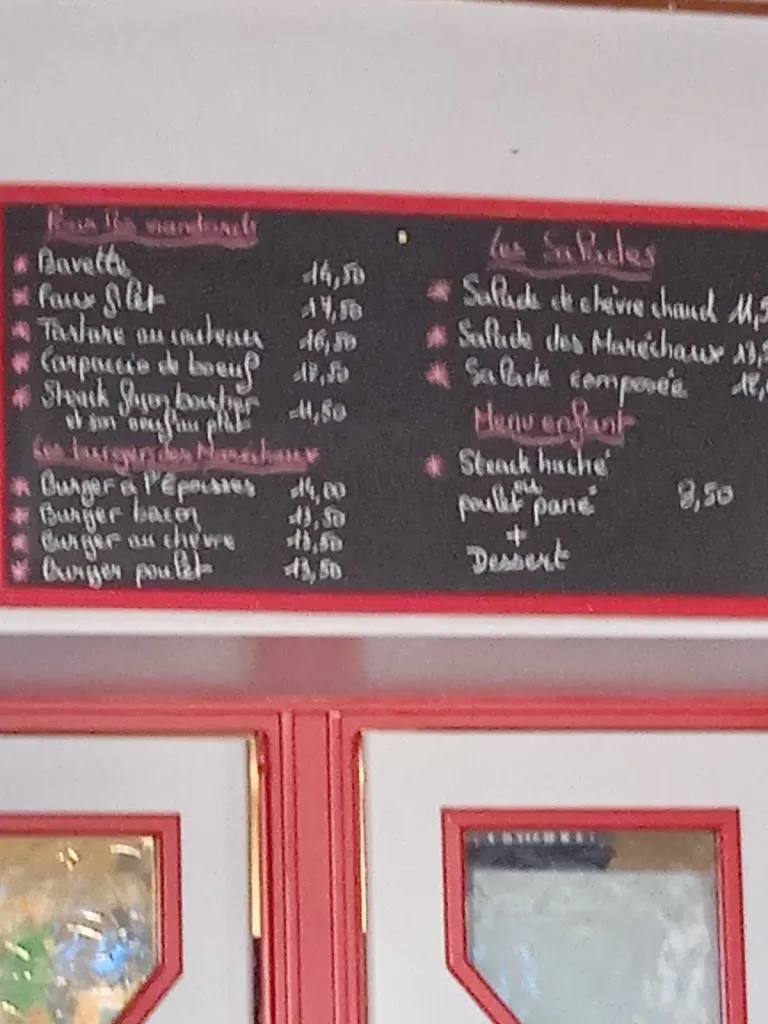 Pour les viandards
* Bavette 14,50
* Faux filet 17,50
* Tartare au couteau 16,50
* Carpaccio de boeuf
* Steack façon boucher
et son oeuf au plat 11,50
Les burger des Maréchaux
* Burger à l'Epoisses 14,00
* Burger bacon 13,50
* Burger au chèvre 13,50
* Burger poulet 13,50
Les Salades
* Salade de chèvre chaud 11,5
* Salade des Maréchaux 13,5
* Salade composée
Menu enfant
* Steack haché
ou
poulet pané 8,50
+
Dessert